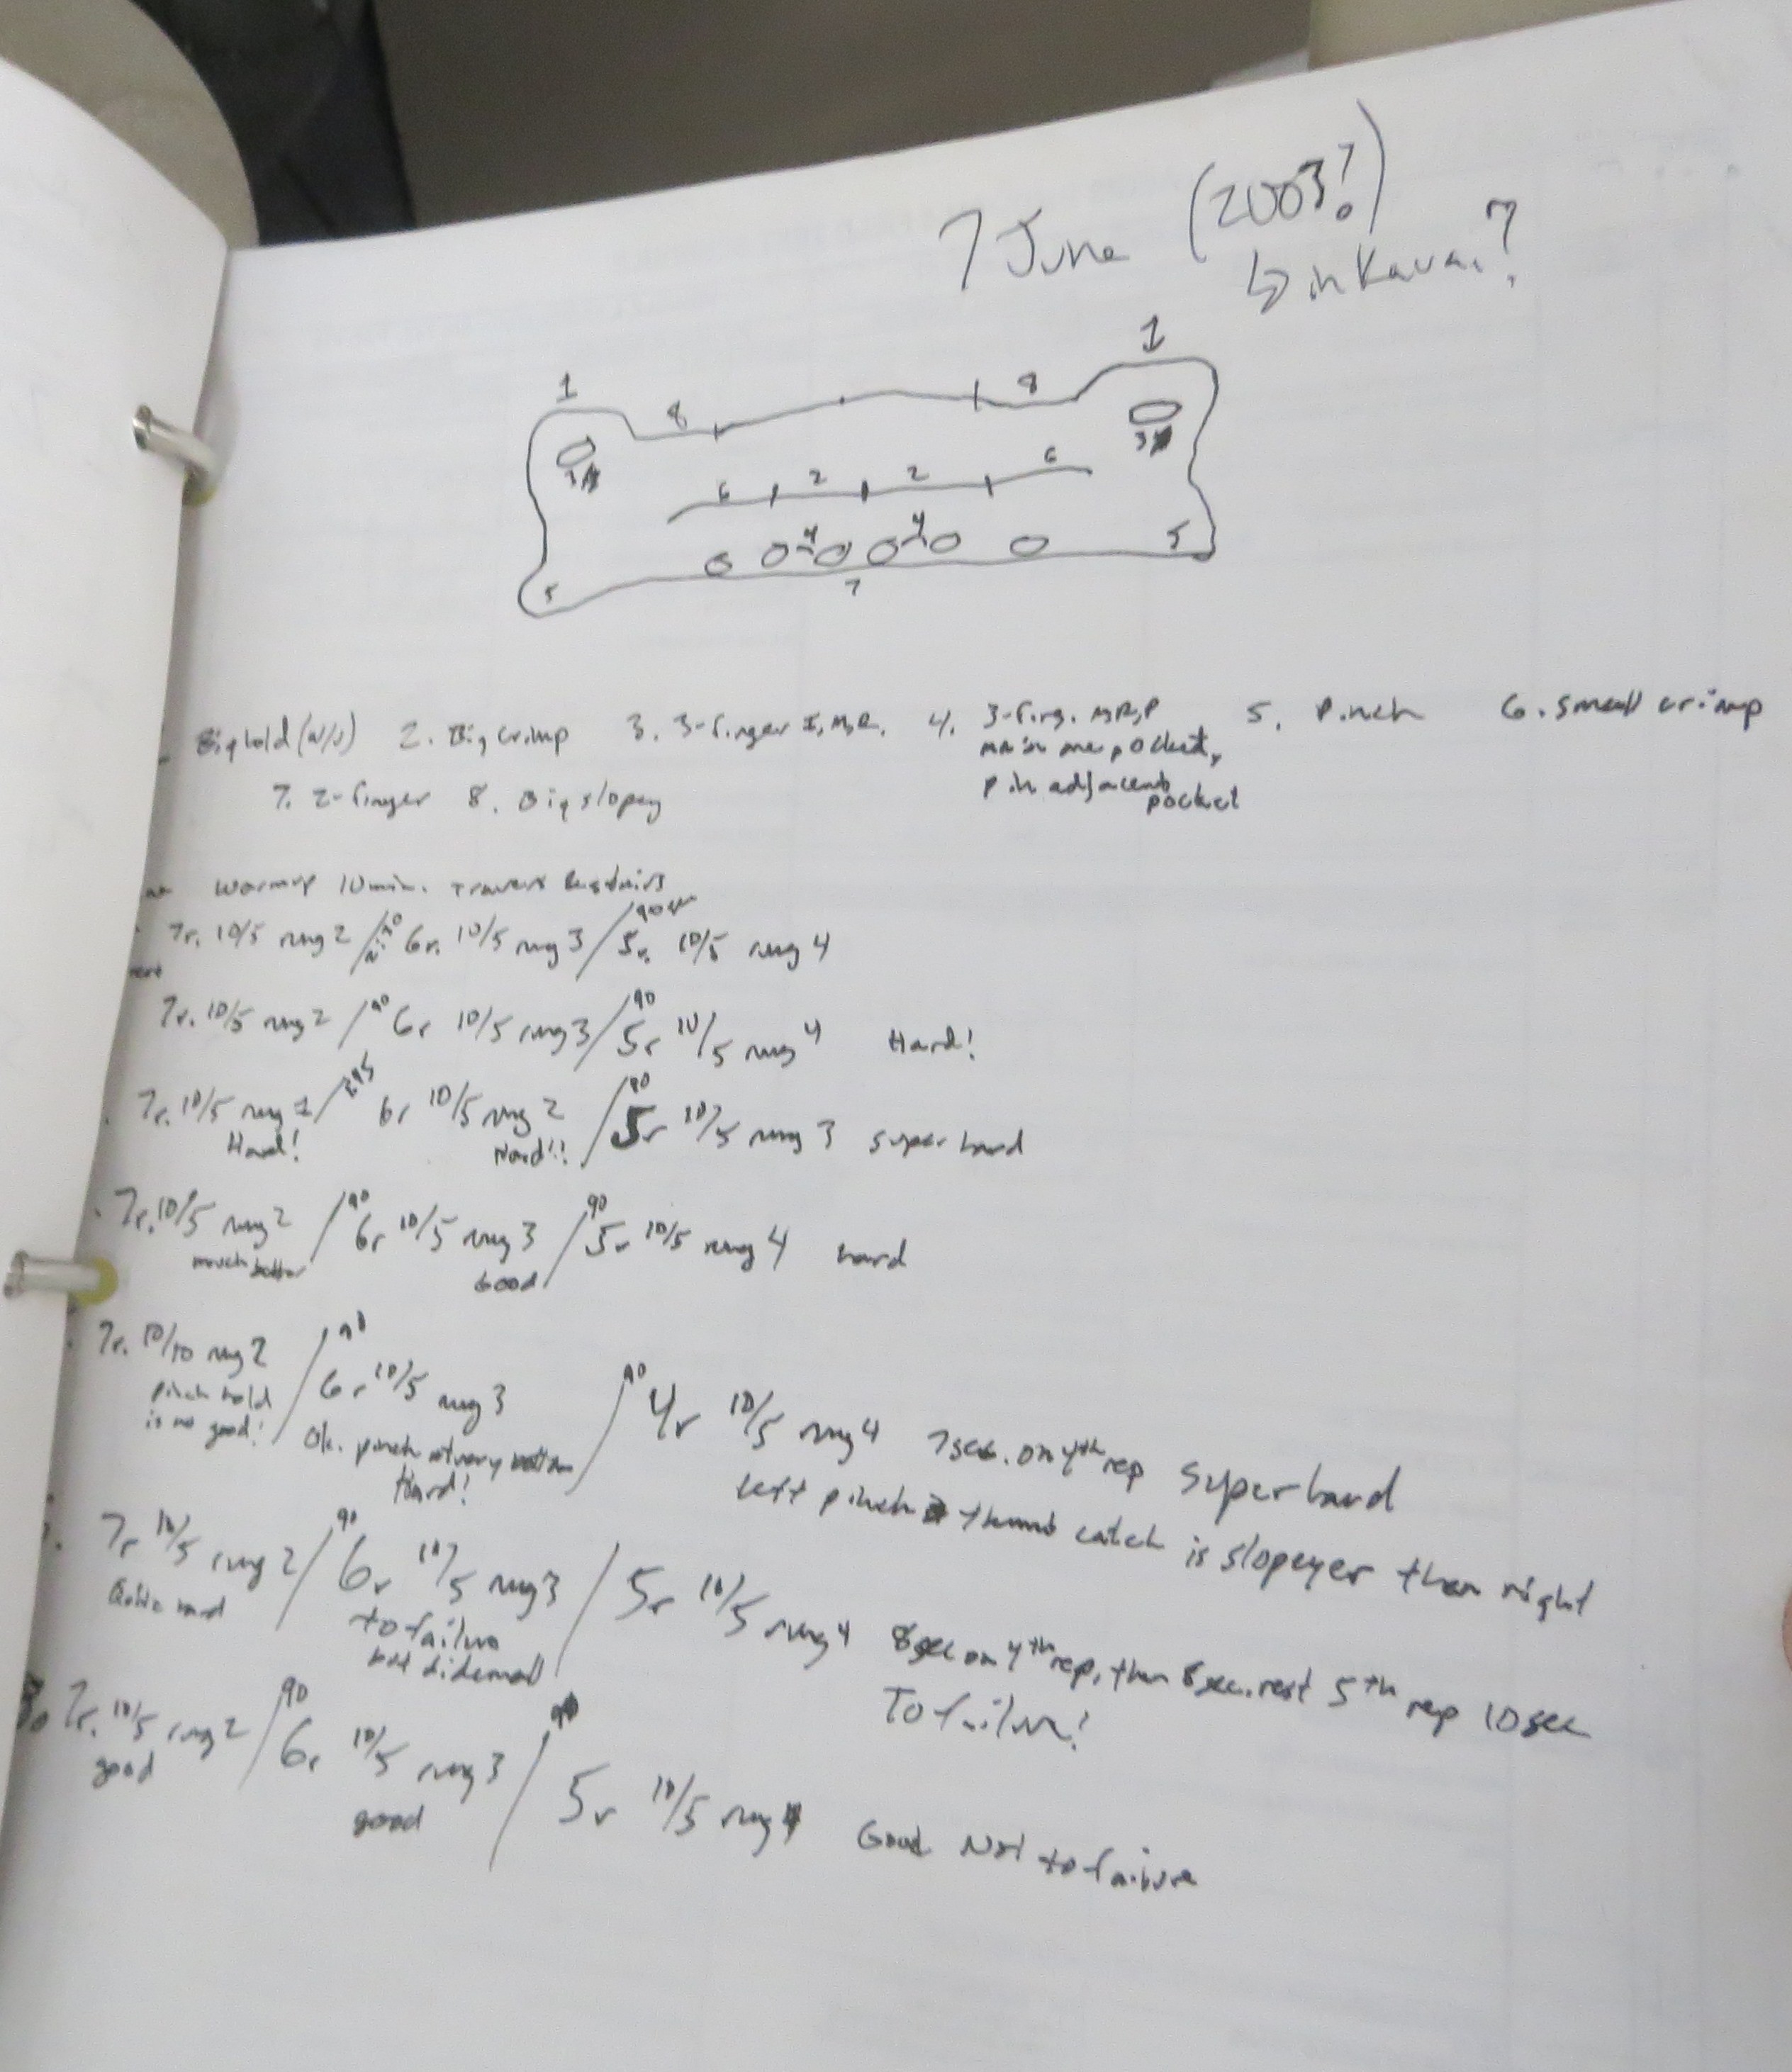 7 June (2003?)
↳ in Kauai?
1 1
8 8
3 3
6 2 2 6
4 4
5 5
7
Big hold (w/u) 2. Big crimp 3. 3-finger I, M, R. 4. 3-fing. M,R,P 5. Pinch 6. small crimp
M R in one pocket,
P in adjacent
pocket
7. 2-finger 8. Big slopey
Warmup 10 min. Traverse
7r. 10/5 rung 2 / 6r. 10/5 rung 3 / 90 5r. 10/5 rung 4
7r. 10/5 rung 2 / 90 6r 10/5 rung 3 / 90 5r 10/5 rung 4 Hard!
7r. 10/5 rung 1 / 6r 10/5 rung 2 / 90 5r 10/5 rung 3 super hard
Hard! Hard!!
7r. 10/5 rung 2 / 90 6r 10/5 rung 3 / 90 5r 10/5 rung 4 hard
much better Good
7r. 10/10 rung 2 / 90 6r 10/5 rung 3 / 90 4r 10/5 rung 4 7 sec. on 4th rep super hard
pinch hold
is no good!
Ok. pinch at very bottom
Hard!
Left pinch thumb catch is slopeyer than right
7r 10/5 rung 2 / 90 6r 10/5 rung 3 / 5r 10/5 rung 4 8 sec on 4th rep, then 8 sec. rest 5th rep 10 sec
Quite hard to failure
but did em all
To failure!
7r. 10/5 rung 2 / 90 6r 10/5 rung 3 / 5r 10/5 rung 4 Good Not to failure
good good